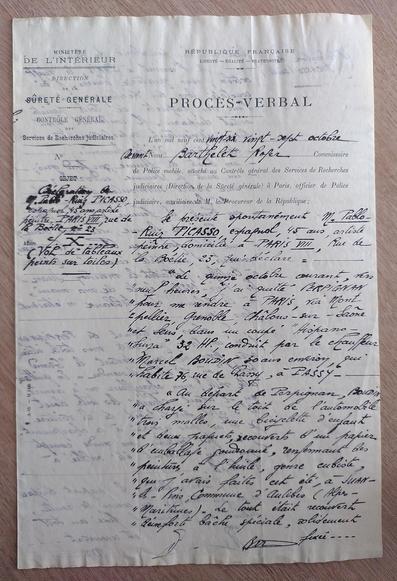 MINISTÈRE
DE L'INTÉRIEUR
DIRECTION
DE LA
SÛRETÉ GÉNÉRALE
CONTRÔLE GÉNÉRAL
DES
Services de Recherches judiciaires
N°
OBJET
M. Pablo-Ruiz PICASSO,
espagnol, 45 ans artiste
peintre PARIS VIII, rue de
la Boëtie, n° 23
c/ X
(Vol de tableaux
peints sur toiles)
RÉPUBLIQUE FRANÇAISE
LIBERTÉ — ÉGALITÉ — FRATERNITÉ
PROCÈS-VERBAL
L'an mil neuf cent vingt-six vingt-sept octobre
devant nous Barthelet Commissaire
de Police mobile, attaché au Contrôle général des Services de Recherches
judiciaires (Direction de la Sûreté générale) à Paris, officier de Police
judiciaire, auxiliaire de M. le Procureur de la République ;
Se présente spontanément M. Pablo-
Ruiz PICASSO, espagnol, 45 ans, artiste
peintre, domicilié à PARIS VIII, Rue de
la Boëtie, 23, qui déclare :
"Le quinze octobre courant, vers
neuf heures, j'ai quitté PERPIGNAN
"pour me rendre à PARIS, via Mont
"pellier, Grenoble, Châlons-sur-Saône
"et Sens, dans un coupé "Hispano-
"Suiza" 32 HP. conduit par le chauffeur
"Marcel BOUDIN 30 ans environ, qui
"habite 76, rue de à PASSY
"Au départ de Perpignan, BOUDIN
"a chargé sur le toit de l'automobile
"trois malles, une bicyclette d'enfant
"et deux paquets, recouverts d'un papier
"d'emballage goudronné, renfermant des
"peintures à l'huile, genre cubiste,
"que j'avais faites cet été, à JUAN-
"les-Pins Commune d'Antibes (Alpes-
"Maritimes). Le tout était recouvert
"d'une forte bâche spéciale, solidement
fixée